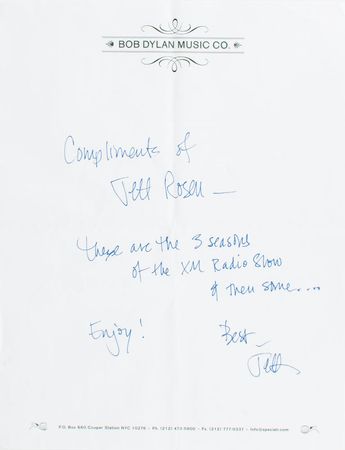 BOB DYLAN MUSIC CO.
Compliments of
Jeff Rosen —
these are the 3 seasons
of the XM Radio Show
& then some....
Enjoy!
Best —
Jeff
P.O. Box 860 Cooper Station NYC 10276 • Ph. (212) 473-5900 • Fx. (212) 777-9337 • info@specialr.com